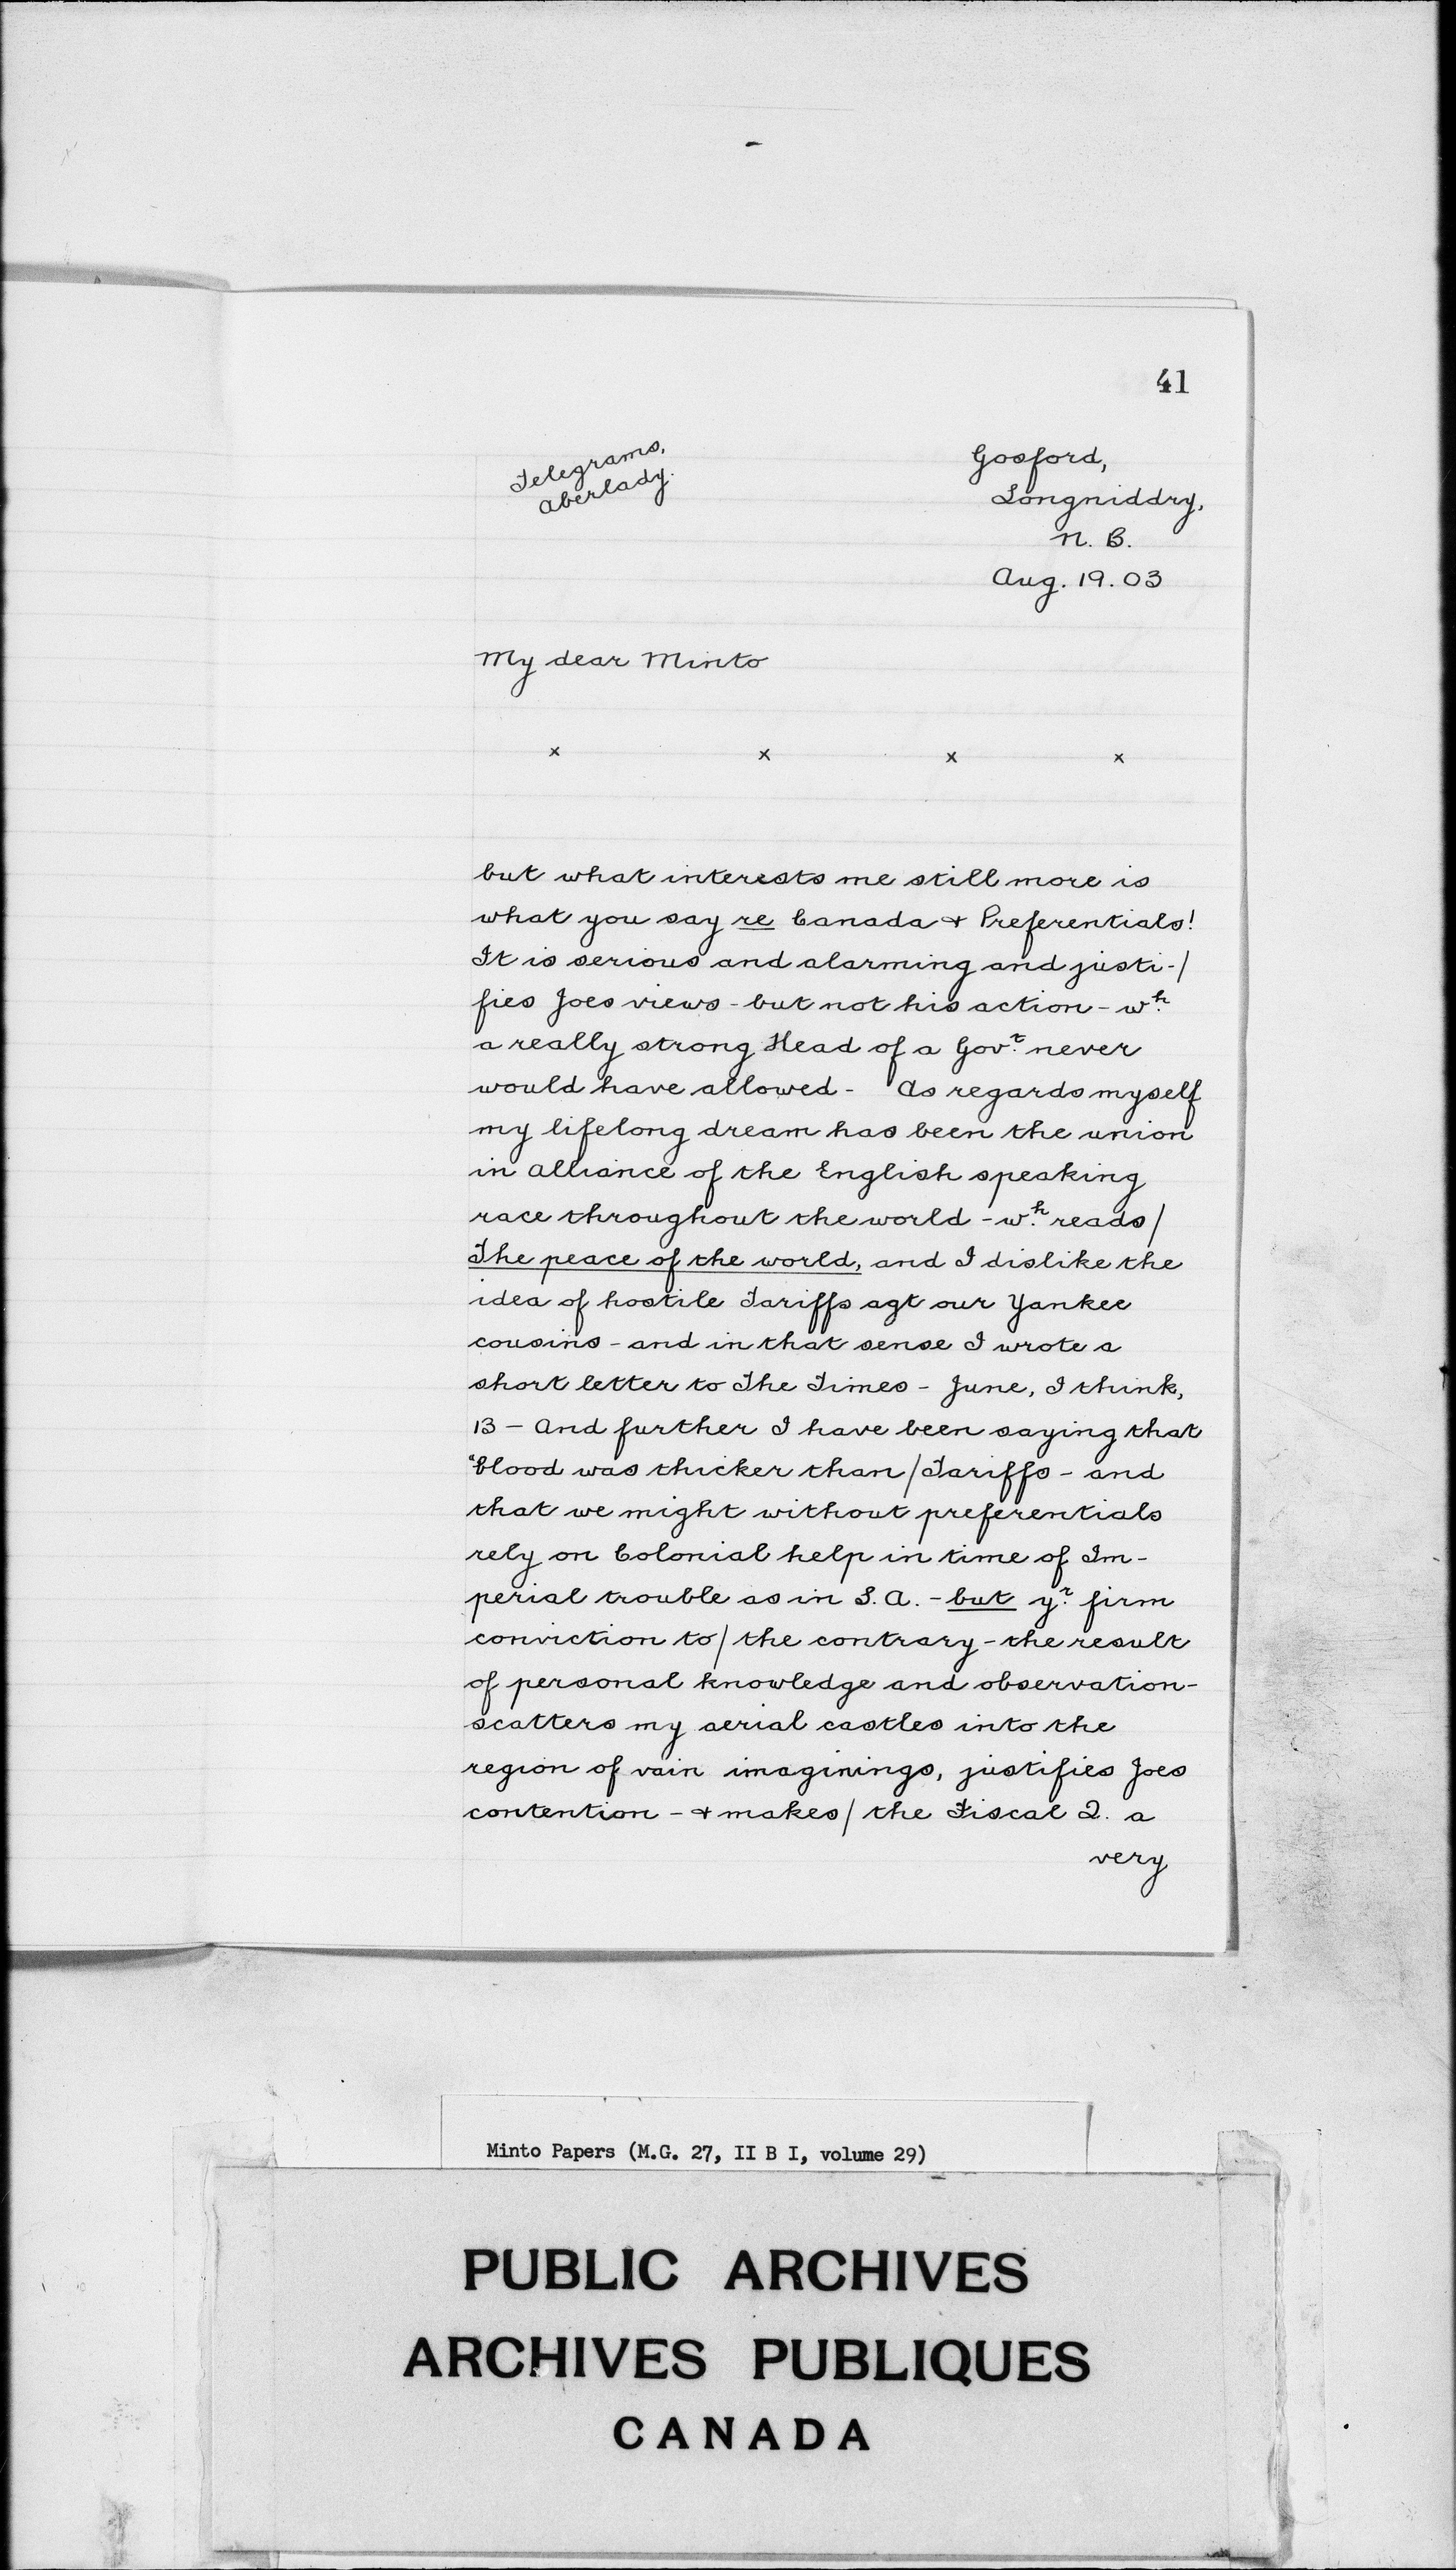 41
Telegrams,
Aberlady.
Gosford,
Longniddry,
N. B.
Aug. 19. 03
My dear Minto
x x x x
but what interests me still more is
what you say re Canada & Preferentials!
It is serious and alarming and justi-/
fies Joes views - but not his action - wh.
a really strong Head of a Govt. never
would have allowed - As regards myself
my lifelong dream has been the union
in alliance of the English speaking
race throughout the world - wh. reads/
The peace of the world, and I dislike the
idea of hostile Tariffs agt our Yankee
cousins - and in that sense I wrote a
short letter to The Times - June, I think,
13 - And further I have been saying that
"blood was thicker than/Tariffs - and
that we might without preferentials
rely on Colonial help in time of Im-
perial trouble as in S. A. - but yr. firm
conviction to/the contrary - the result
of personal knowledge and observation -
scatters my aerial castles into the
region of vain imaginings, justifies Joes
contention - & makes/the Fiscal Q. a
very
Minto Papers (M.G. 27, II B I, volume 29)
PUBLIC ARCHIVES
ARCHIVES PUBLIQUES
CANADA